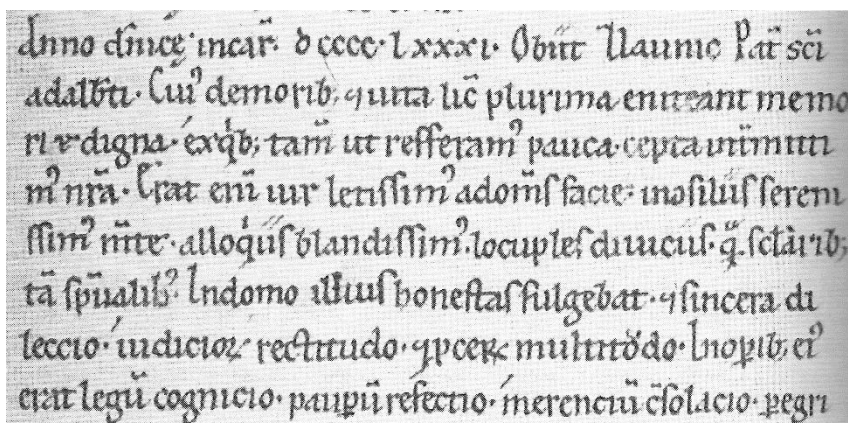 Anno dn̄icę incar̄. d cccc lxxxi. Obiit Slaunic Pat̄ sc̄i
adalb̄ti. Cui᷒ de morib; ⁊ uita lic̄ plurima eniteant memo
rię digna. ex q̇b; tam̄ ut refferam᷒ pauca. cepta intīmitti
m᷒ nr̄a. Erat eni̅ uir letissim᷒ ad om̄s facie. in ɔsiliis sereni
ssim᷒ m̄te. alloq̇iis blandissim᷒. locuples diuiciis. q̄. sc̄larib;
tā sp̄ualib᷒. In domo illius honestas fulgebat. ⁊ sincera di
leccio. iudicioꝝ rectitudo. ⁊ ꝓceꝝ multitudo. In oꝑib; ei᷒
erat legū cognicio. pauꝑū refectio. merenciū c̄solacio. ꝑegri